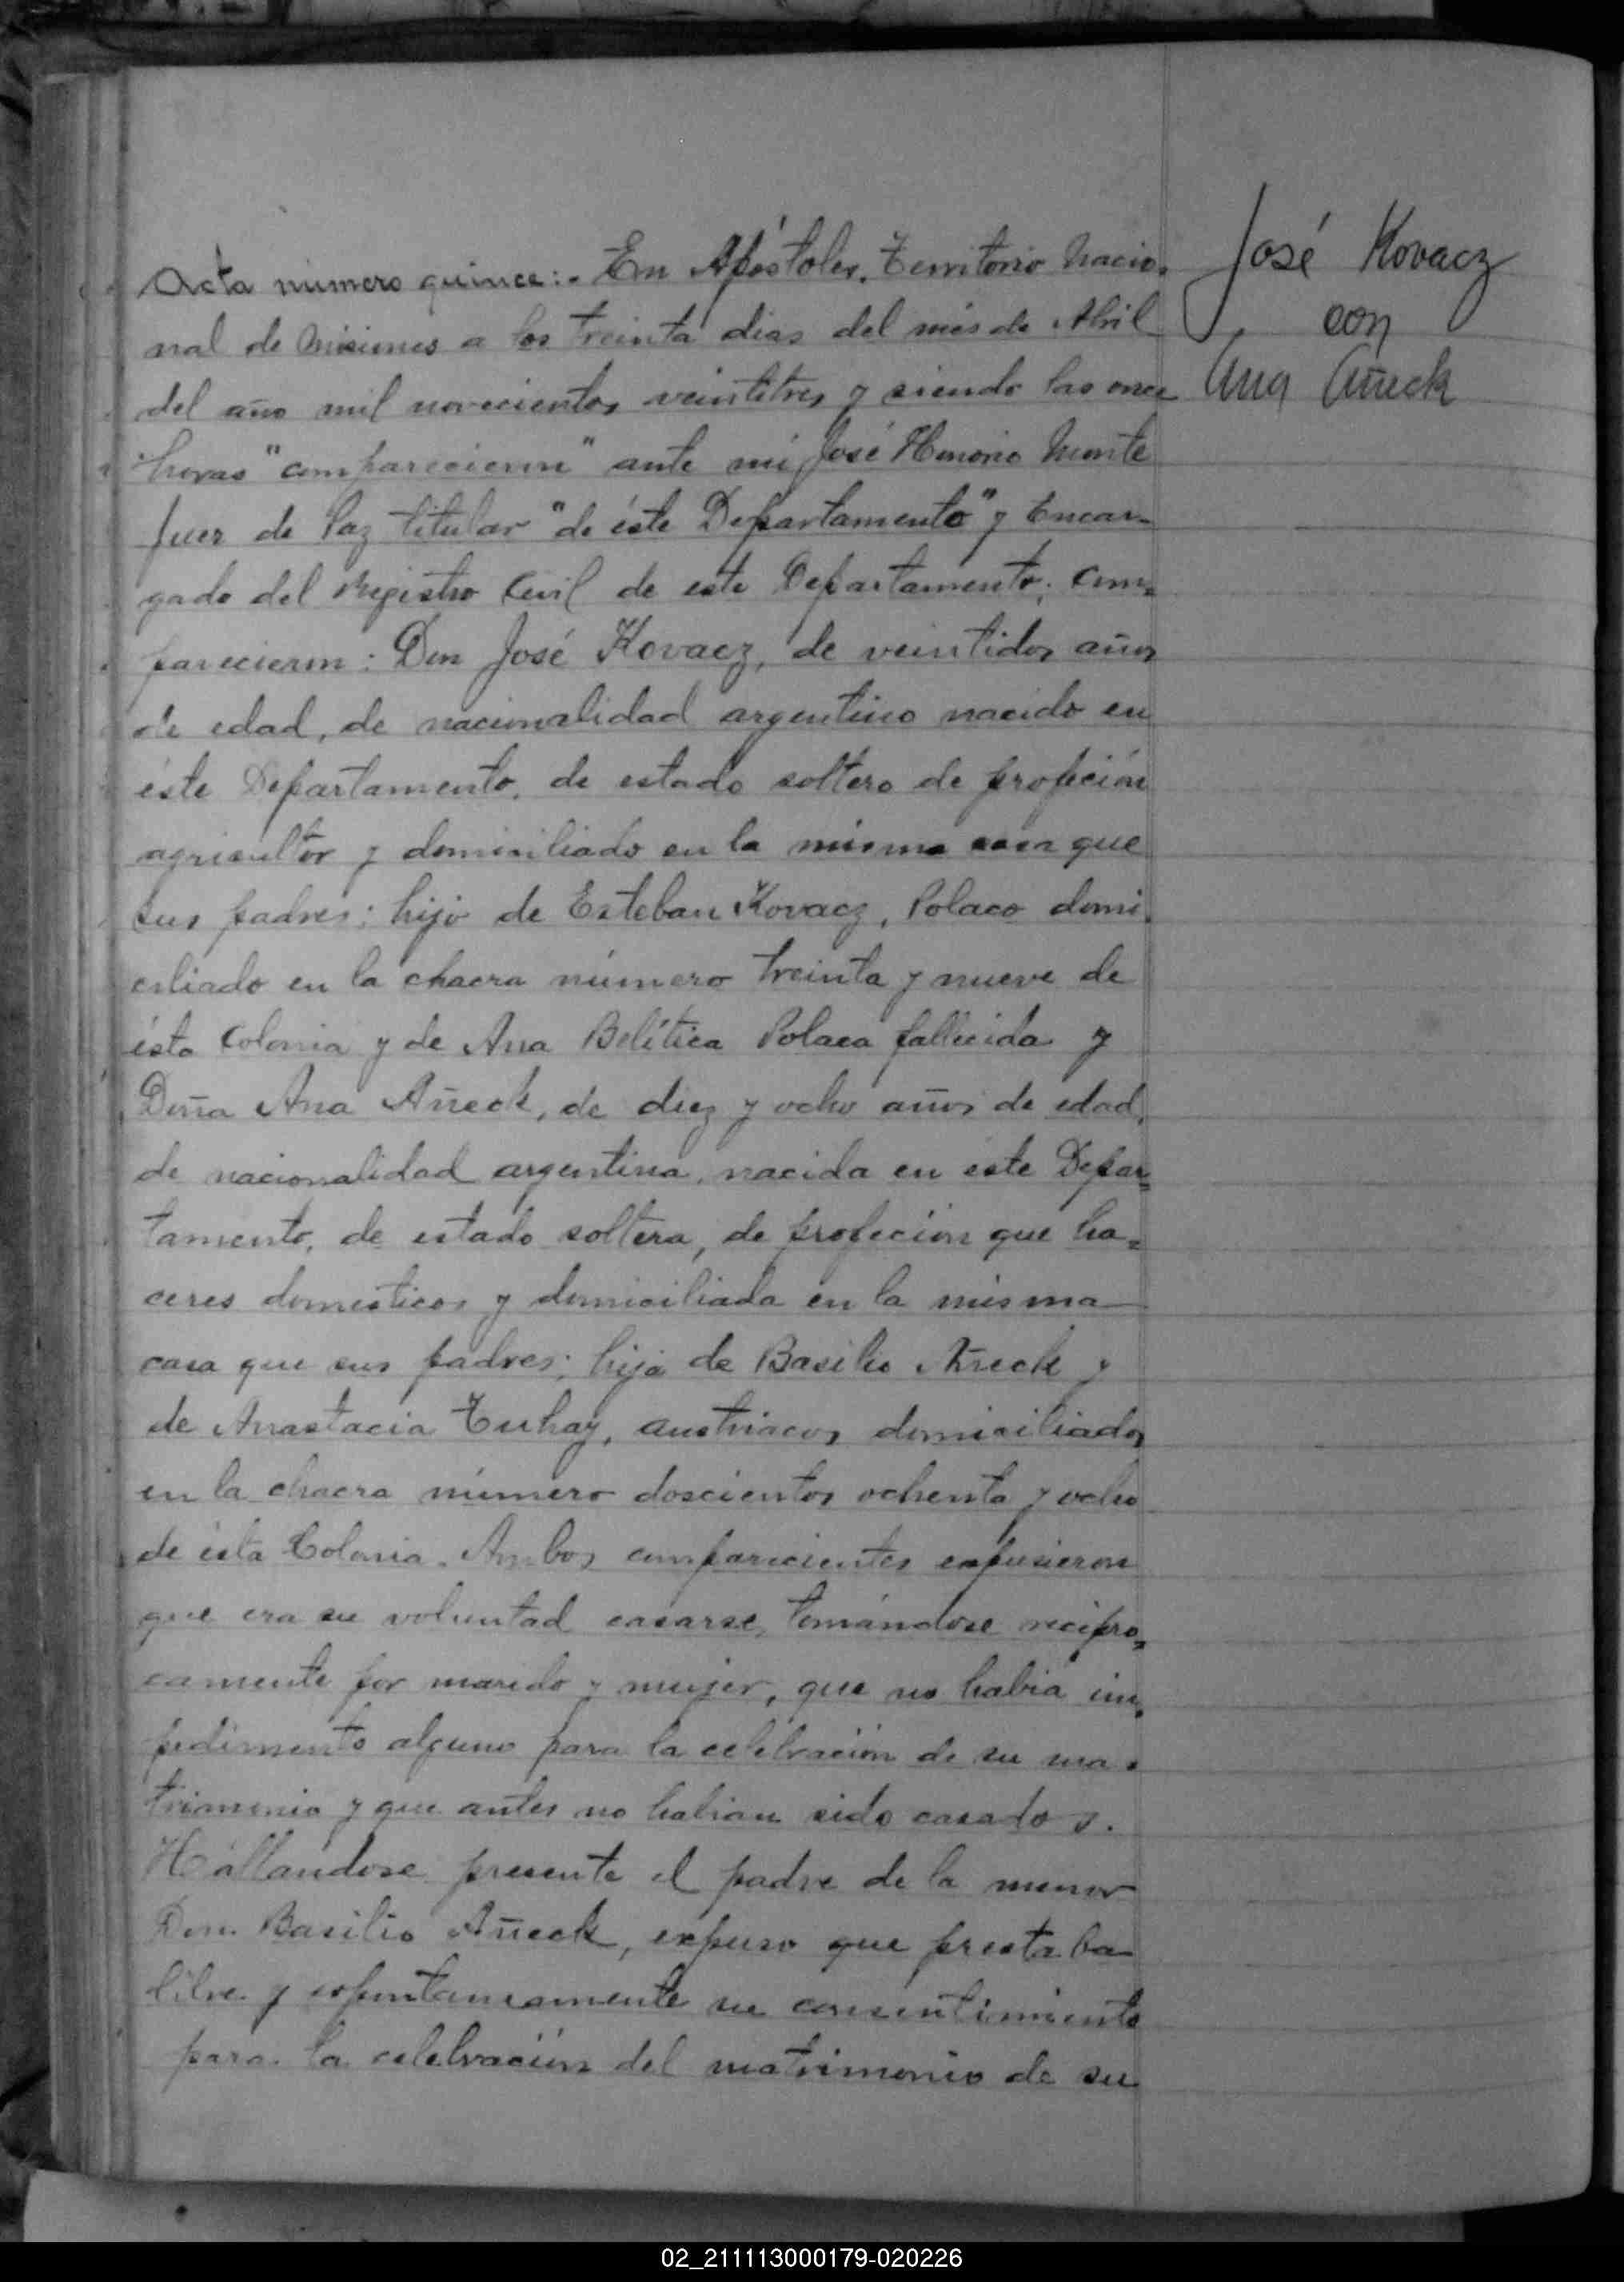 José Kovacz
con
Ana Añeck
Acta número quince:- En Apóstoles, Territorio Nacio-
nal de Misiones a los treinta dias del mes de Abril
del año mil novecientos veintitres y siendo las once
horas "comparecieron" ante mi José Honorio Monte
Juez de Paz titular "de éste Departamento" y Encar-
gado del Registro Civil de este Departamento; com-
parecieron: Don José Kovacz, de veintidos años
de edad, de nacionalidad argentino nacido en
éste Departamento, de estado soltero de profeción
agricultor y domiciliado en la misma casa que
sus padres; hijo de Esteban Kovacz, Polaco domi-
ciliado en la chacra número treinta y nueve de
ésta Colonia y de Ana Belítica Polaca fallecida y
Doña Ana Añeck, de diez y ocho años de edad,
de nacionalidad argentina, nacida en este Depar-
tamento, de estado soltera, de profeción que ha-
ceres domesticos y domiciliada en la misma
casa que sus padres; hija de Basilio Añeck y
de Anastacia Tuhay, austriacos domiciliados
en la chacra número doscientos ochenta y ocho
de ésta Colonia. Ambos comparecientes expusieron
que era su voluntad casarse, tomándose recipro-
camente por marido y mujer, que no habia im-
pedimento alguno para la celebración de su ma-
trimonio y que antes no habian sido casados.
Hállandose presente el padre de la menor
Don Basilio Añeck, expuso que prestaba
libre y espontaneamente su consentimiento
para la celebración del matrimonio de su
02_211113000179-020226